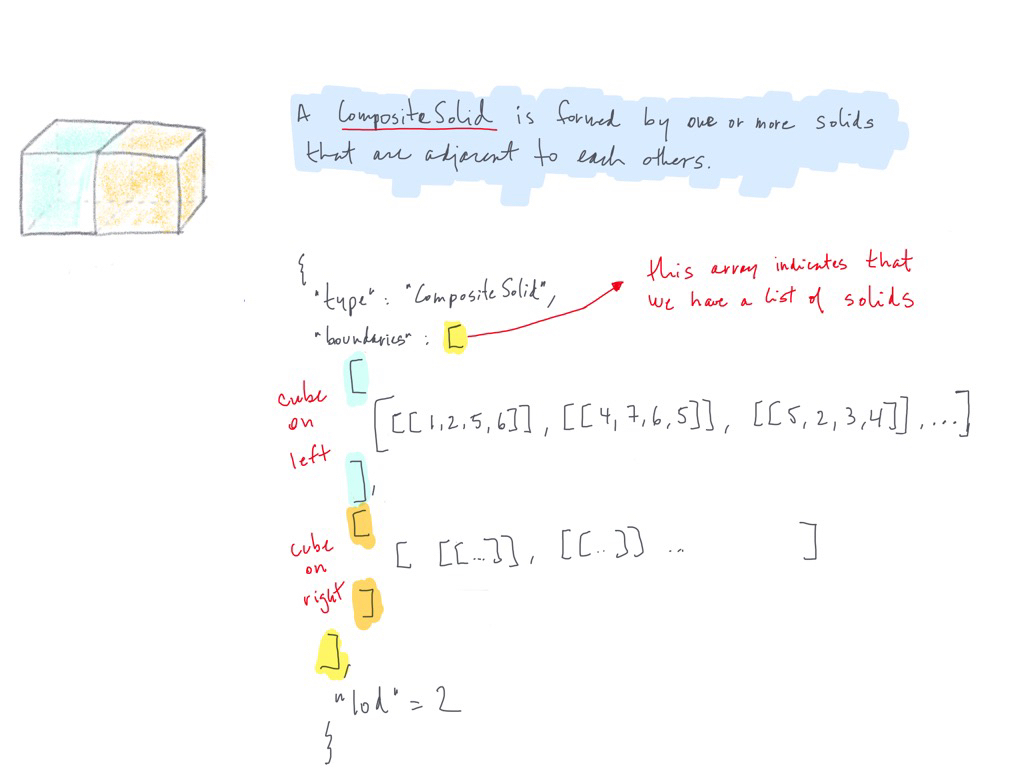 A CompositeSolid is formed by one or more solids
that are adjacent to each others.
{
"type": "CompositeSolid",
"boundaries": [
this array indicates that
we have a list of solids
[
cube
on
left
[[[1,2,5,6]], [[4,7,6,5]], [[5,2,3,4]], ...]
],
[
cube
on
right
[ [[...]], [[..]] ... ]
]
],
"lod" = 2
}